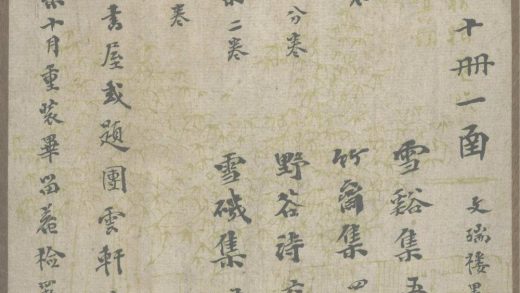 十冊一函
文瑞樓
雪谿集五
竹齋集四
分卷
野谷詩六
二卷
雪磯集
卷
書屋或題團雲軒
十月重裝畢留